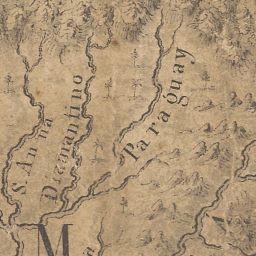 S. Anna
Diamantino
Paraguay
M